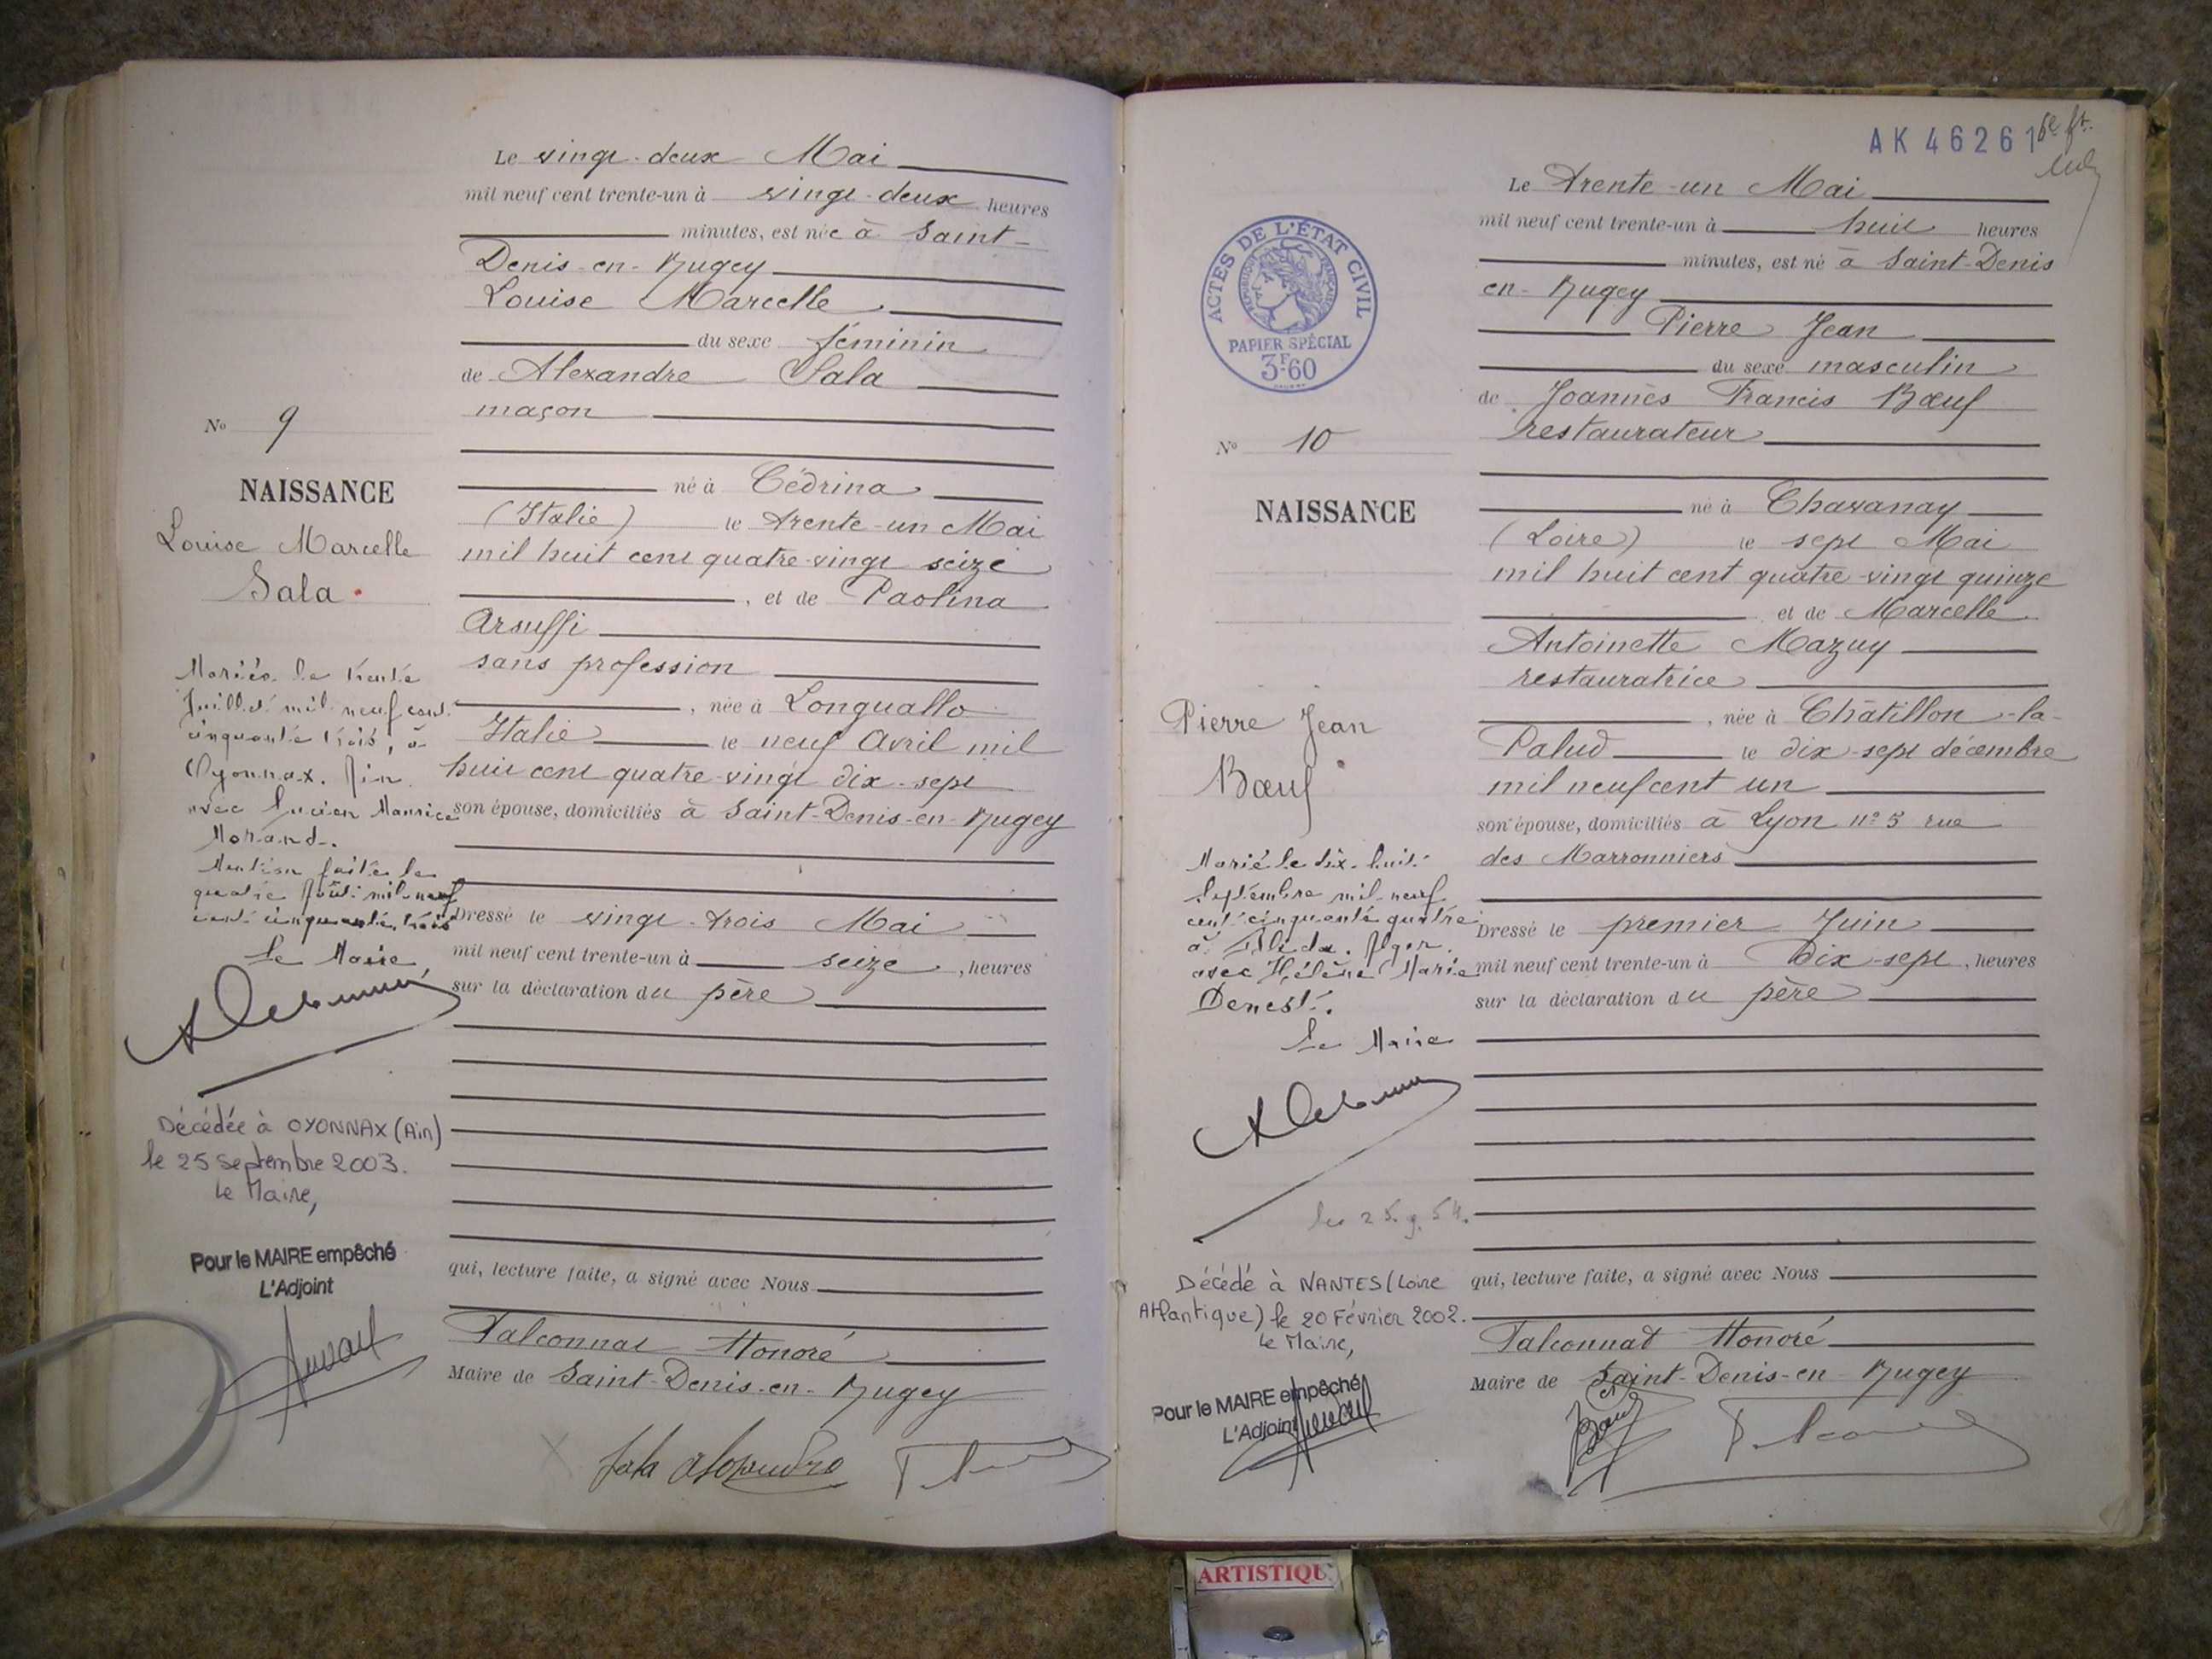 Le vingt-deux Mai
mil neuf cent trente-un à vingt-deux heures
minutes, est née à Saint-
Denis-en-Bugey
Louise Marcelle
du sexe féminin
de Alexandre Sala
maçon
né à Cédrina
(Italie) le trente-un Mai
mil huit cent quatre-vingt seize
, et de Paolina
Arsuffi
sans profession
, née à Longuallo
Italie le neuf Avril mil
huit cent quatre-vingt dix-sept
son épouse, domiciliés à Saint-Denis-en-Bugey
Dressé le vingt-trois Mai
mil neuf cent trente-un à seize, heures
sur la déclaration du père
qui, lecture faite, a signé avec Nous
Falconnat Honoré
Maire de Saint-Denis-en-Bugey
Sala
No 9
NAISSANCE
Louise Marcelle
Sala
Mariée le trente
Juillet mil neuf cent
cinquante trois, à
Oyonnax. Ain
avec Lucien Maurice
Morand.
Mention faite le
quatre Août mil-neuf
cent cinquante trois
Le Maire
Décédée à OYONNAX (Ain)
le 25 Septembre 2003.
Le Maire,
Pour le MAIRE empêché
L'Adjoint
AK 46261
Le Trente-un Mai
mil neuf cent trente-un à huit heures
minutes, est né à Saint-Denis
en-Bugey
Pierre Jean
du sexe masculin
de Joannès Francis Bœuf
restaurateur
né à Chavanay
(Loire) le sept Mai
mil huit cent quatre-vingt quinze
et de Marcelle
Antoinette Mazuy
restauratrice
, née à Châtillon-la-
Palud le dix-sept décembre
mil neuf cent un
son épouse, domiciliés à Lyon no 5 rue
des Marronniers
Dressé le premier Juin
mil neuf cent trente-un à Dix-sept, heures
sur la déclaration du père
qui, lecture faite, a signé avec Nous
Falconnat Honoré
Maire de Saint-Denis-en-Bugey
Bœuf
ACTES DE L'ÉTAT CIVIL
RÉPUBLIQUE FRANÇAISE
PAPIER SPÉCIAL
3F60
No 10
NAISSANCE
Pierre Jean
Bœuf
Marié le dix-huit
Septembre mil-neuf
cent cinquante quatre
à Blida. Alger.
avec Hélène Marie
Denest.
Le Maire
25.9.54.
Décédé à NANTES (Loire
Atlantique) le 20 Février 2002.
Le Maire,
Pour le MAIRE empêché
L'Adjoint
ARTISTIQU